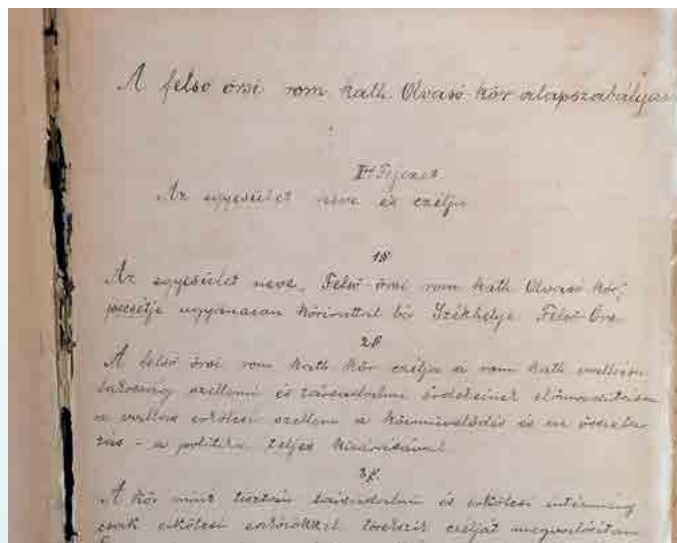 A felső örsi rom kath. Olvasó kör alapszabályai
I. Fejezet
Az egyesület neve és czélja
1§
Az egyesület neve, Felső örsi rom kath Olvasó kör,
pecsétje ugyanazon körirattal bir Székhelye Felső Örs
2§
A felső örsi rom kath. kör czélja a rom kath vallásu
lakosság szellemi és társadalmi érdekeinek előmozditása
a vallás erkölcsi szellem a közmüvelődés és az összetar
tás - a politika teljes kizárásával
3§.
A kör mint tisztán társadalmi és erkölcsi intézmény
csak erkölcsi eszközökkel czélját megvalósitani